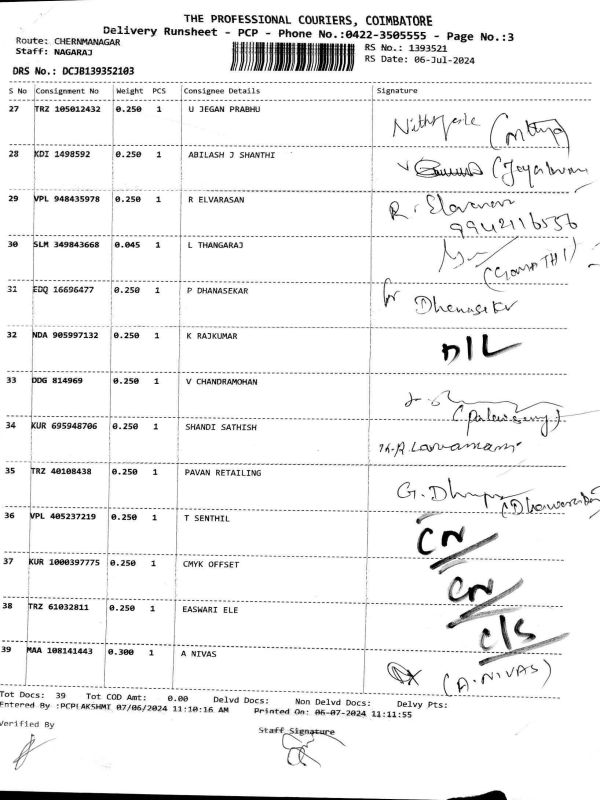 THE PROFESSIONAL COURIERS, COIMBATORE
Delivery Runsheet - PCP - Phone No.:0422-3505555 - Page No.:3
Route: CHERNMANAGAR RS No.: 1393521
Staff: NAGARAJ RS Date: 06-Jul-2024
DRS No.: DCJB139352103
S No Consignment No Weight PCS Consignee Details Signature
27 TRZ 105012432 0.250 1 U JEGAN PRABHU
28 KDI 1498592 0.250 1 ABILASH J SHANTHI
29 VPL 948435978 0.250 1 R ELVARASAN R. Elavarasan
9942116556
30 SLM 349843668 0.045 1 L THANGARAJ
(GOMATHI)
31 EDQ 16696477 0.250 1 P DHANASEKAR for Dhanasekar
32 NDA 905997132 0.250 1 K RAJKUMAR D/L
33 DDG 814969 0.250 1 V CHANDRAMOHAN
34 KUR 695948706 0.250 1 SHANDI SATHISH
35 TRZ 40108438 0.250 1 PAVAN RETAILING
36 VPL 405237219 0.250 1 T SENTHIL CN
37 KUR 1000397775 0.250 1 CMYK OFFSET CN
38 TRZ 61032811 0.250 1 EASWARI ELE C/S
39 MAA 108141443 0.300 1 A NIVAS (A. NIVAS)
Tot Docs: 39 Tot COD Amt: 0.00 Delvd Docs: Non Delvd Docs: Delvy Pts:
Entered By :PCPLAKSHMI 07/06/2024 11:10:16 AM Printed On: 06-07-2024 11:11:55
Verified By Staff Signature